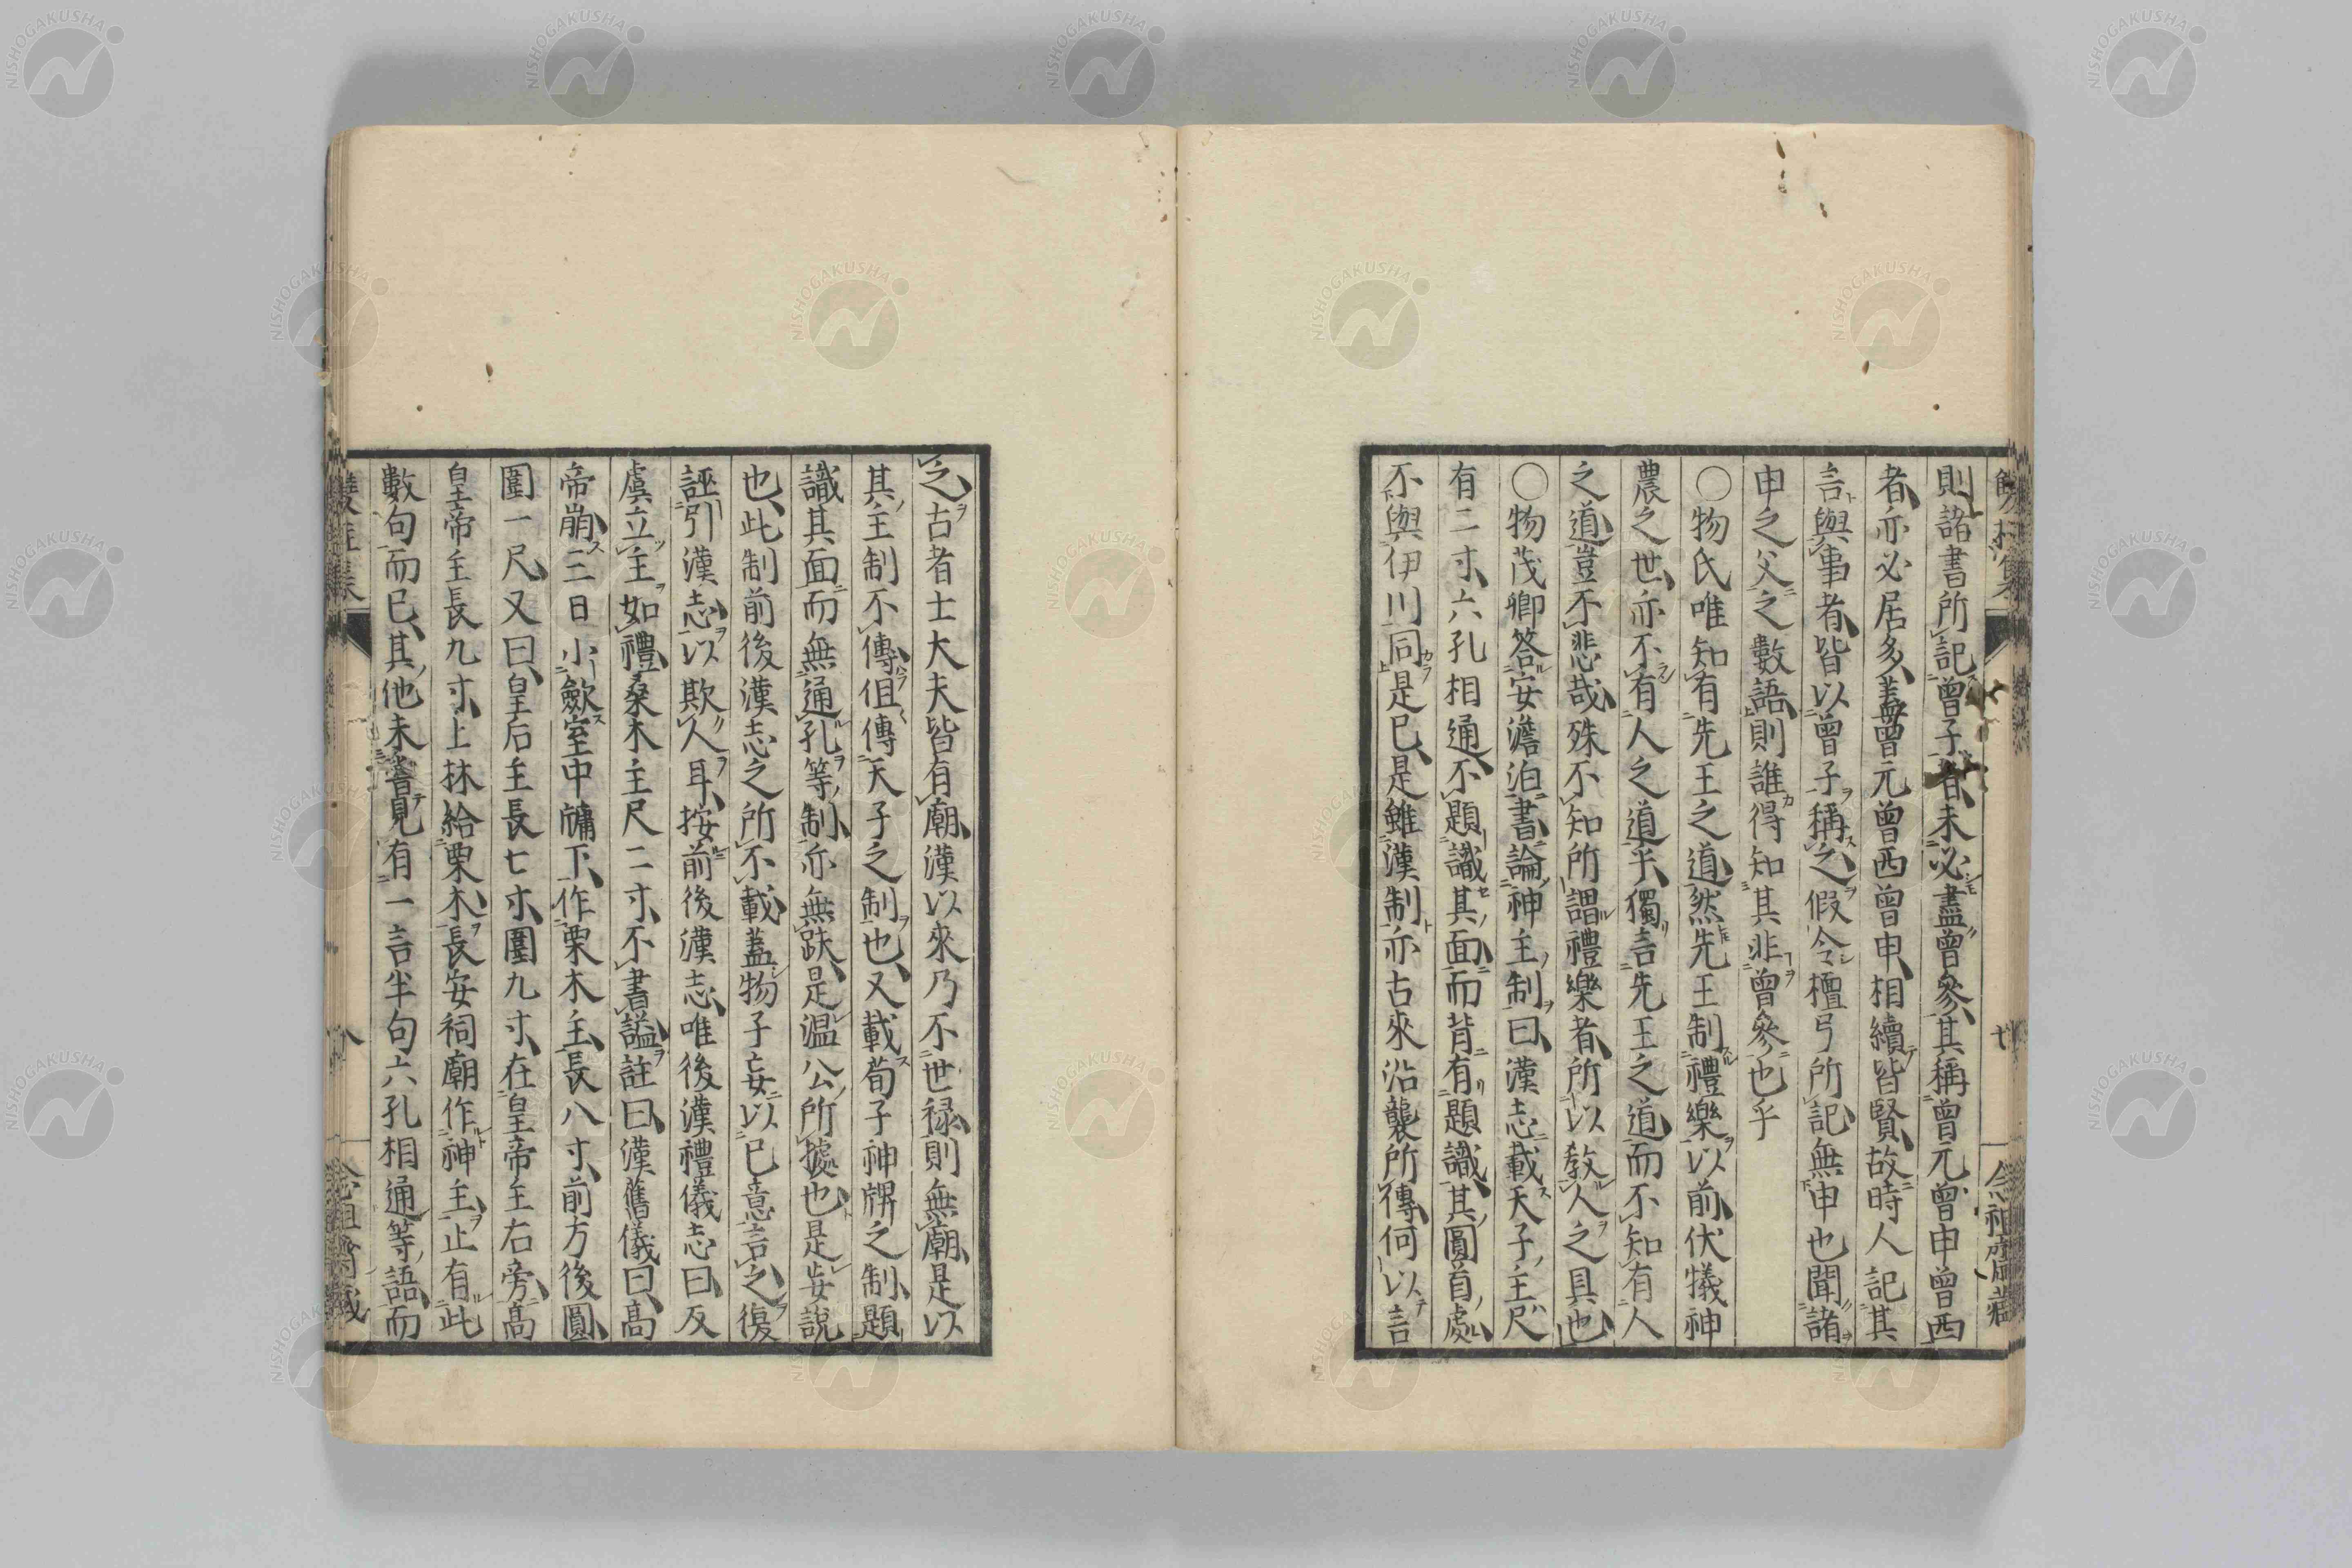 則諸書所記曾子者未必盡曾參其稱曾元曾申曾西
者亦必居多蓋曾元曾西曾申相續皆賢故時人記其
言與事者皆以曾子稱之假令檀弓所記無申也聞諸
申之父之數語則誰得知其非曾參也乎
〇物氏唯知有先王之道然先王制禮樂以前伏犧神
農之世亦不有人之道乎獨言先王之道而不知有人
之道豈不悲哉殊不知所謂禮樂者所以教人之具也
〇物茂卿答安澹泊書論神主制曰漢志載天子主尺
有二寸六孔相通不題識其面而背有題識其圓首處
不與伊川同是已是雖漢制亦古來沿襲所傳何以言
念祖齋藏
之古者士大夫皆有廟漢以來乃不世祿則無廟是以
其主制不傳伹傳天子之制也又載荀子神牌之制題
識其面而無通孔等制亦無趺是溫公所據也是妄說
也此制前後漢志之所不載蓋物子妄以已意言之復
誣引漢志以欺人耳按前後漢志唯後漢禮儀志曰反
虞立主如禮桑木主尺二寸不書謚註曰漢舊儀曰高
帝崩三日小歛室中牖下作栗木主長八寸前方後圓
圍一尺又曰皇后主長七寸圍九寸在皇帝主右旁高
皇帝主長九寸上林給栗木長安祠廟作神主止有此
數句而已其他未嘗見有一言半句六孔相通等語而